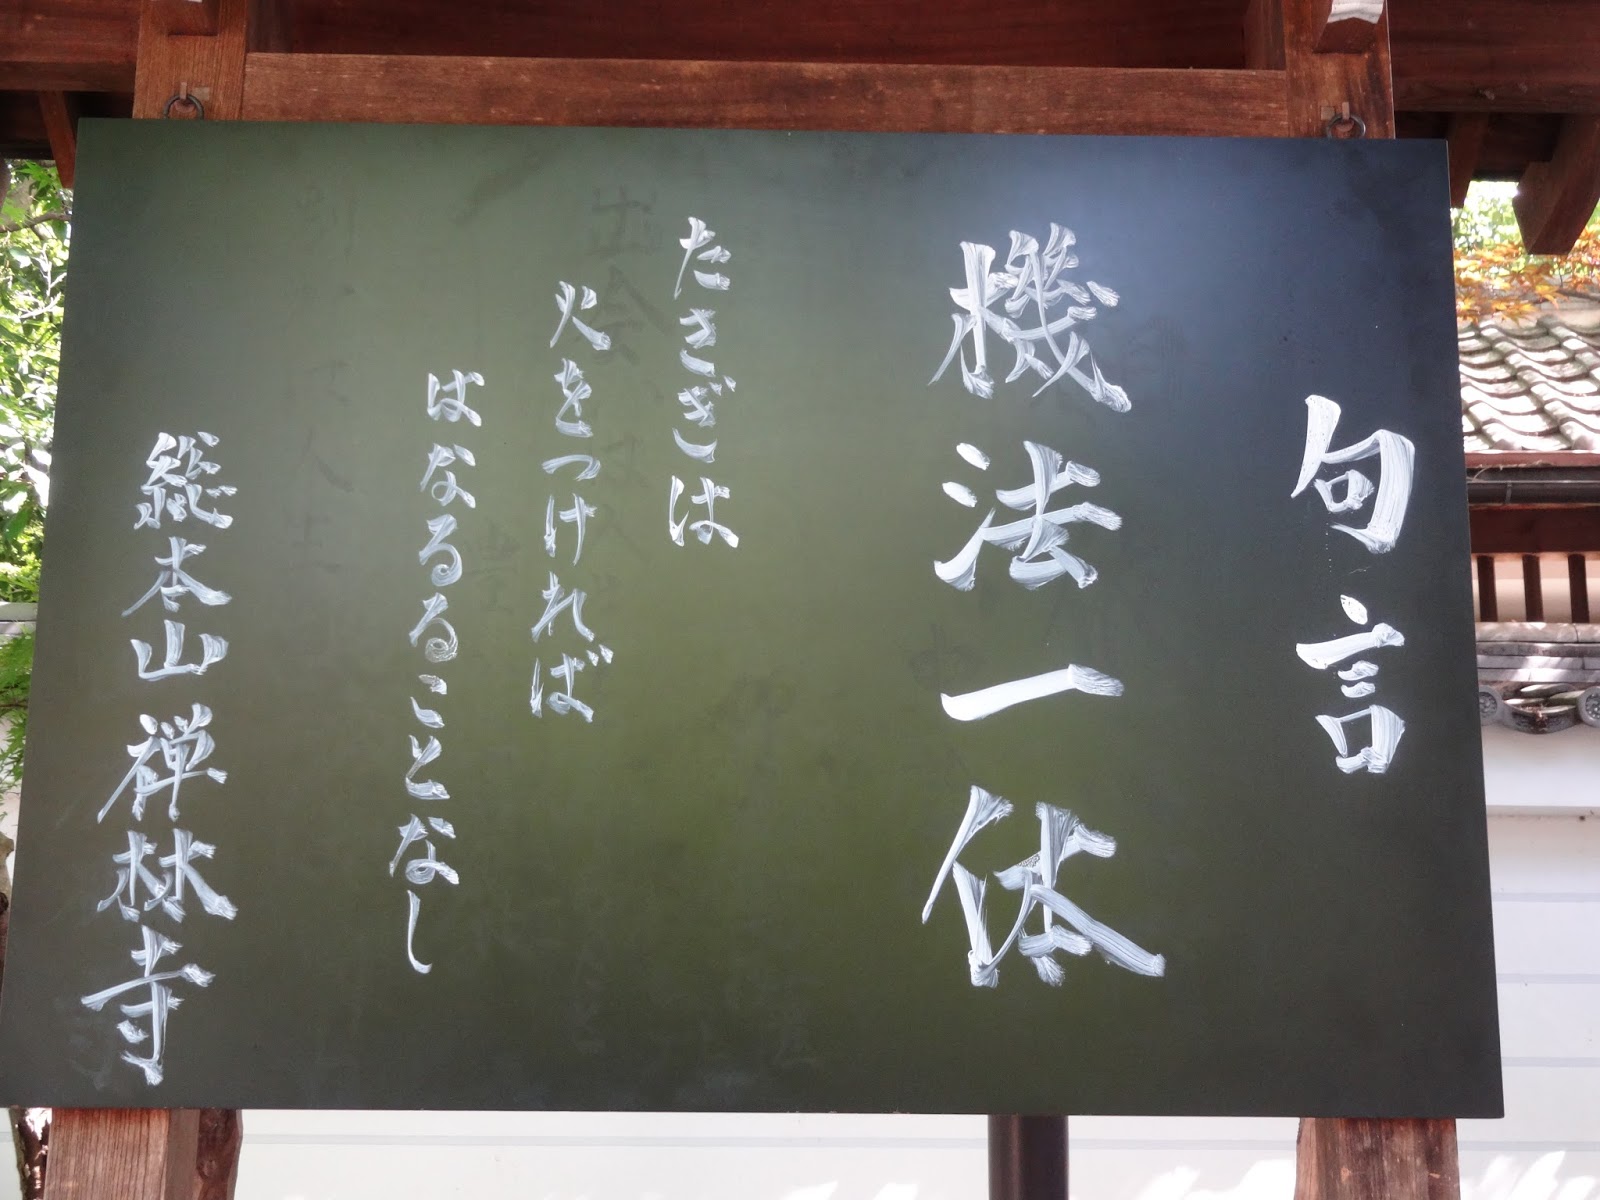 句言
機法一体
たきぎは
火をつければ
はなるることなし
総本山禅林寺